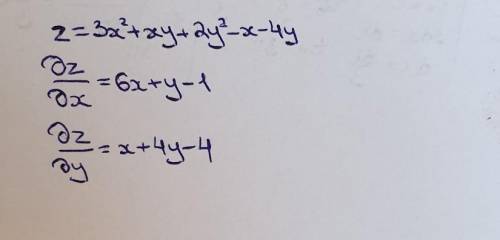 z=3x²+xy+2y²-x-4y
∂z/∂x=6x+y-1
∂z/∂y=x+4y-4